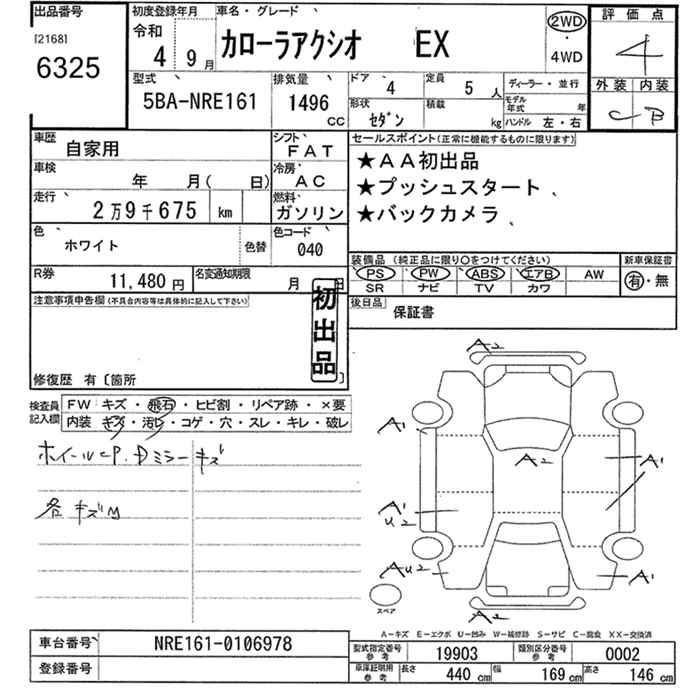 出品番号
[2168]
6325
初度登録年月
令和
4 9月
車名・グレード
カローラアクシオ EX
2WD
・
4WD
評価点
4
外装 内装
C B
型式
5BA-NRE161
排気量
1496
CC
ドア
4
定員
5 人
ディーラー・並行
形状
セダン
積載
kg
モデル年式 年
ハンドル 左・右
車歴
自家用
シフト
FAT
車検
年 月( 日)
冷房
AC
走行
2万9千675 km
燃料
ガソリン
色
ホワイト
色替
色コード
040
R券
11,480 円
名変通知期限
月 日
セールスポイント(正常に機能するものに限ります)
★AA初出品
★プッシュスタート
★バックカメラ
装備品 (純正品に限り○をつけてください)
PS PW ABS エアB AW
SR ナビ TV カワ
新車保証書
有・無
後日品
保証書
注意事項申告欄(不具合内容等は具体的に記入して下さい)
初出品
修復歴 有〔箇所
検査員記入欄
FW キズ・飛石・ヒビ割・リペア跡・×要
内装 キズ・汚レ・コゲ・穴・スレ・キレ・破レ
ホイールCP. Dミラーキズ
各キズM
A2
A1
A2
A1
A1
U2
AU2
A1
A2
スペア
A-キズ E-エクボ U-凹み W-補修跡 S-サビ C-腐食 XX-交換済
車台番号
NRE161-0106978
登録番号
型式指定番号
参考
19903
類別区分番号
参考
0002
車庫証明用
参考
長さ
440 cm
幅
169 cm
高さ
146 cm